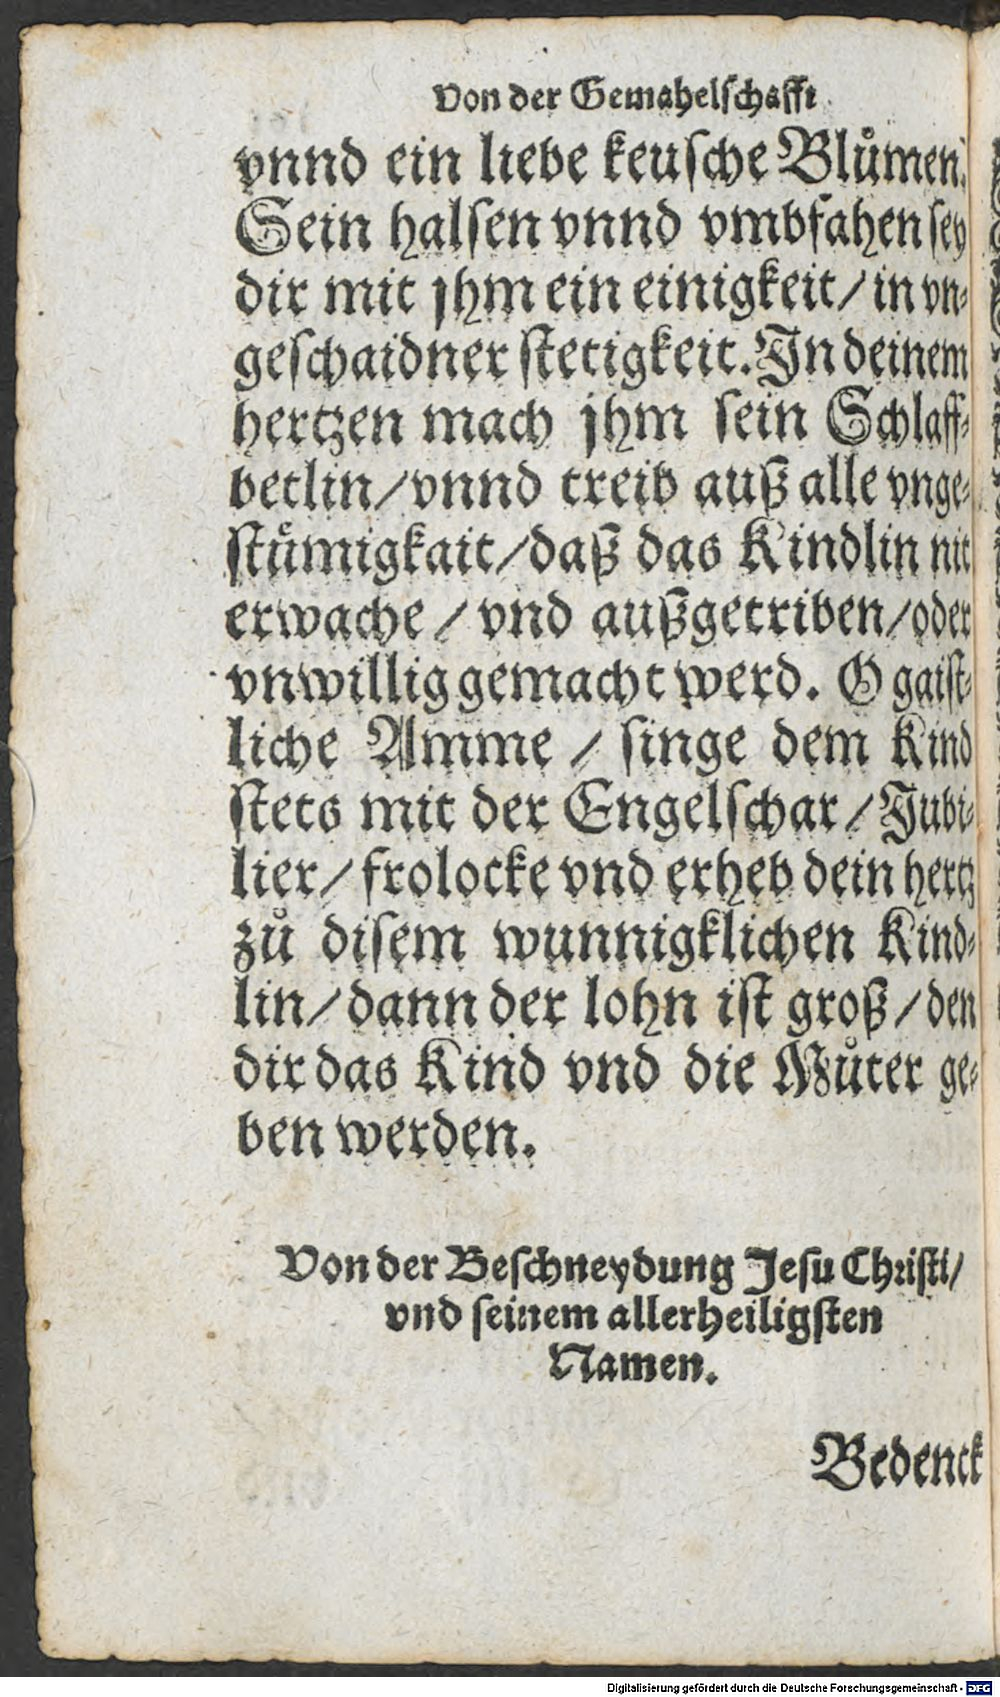 Von der Gemahelschafft
vnnd ein liebe keusche Blůmen.
Sein halsen vnnd vmbfahen sey
dir mit jhm ein einigkeit / in vn-
geschaidner stetigkeit. In deinem
hertzen mach jhm sein Schlaff-
betlin / vnnd treib auß alle vnge-
stůmigkait / daß das Kindlin nit
erwache / vnd außgetriben / oder
vnwillig gemacht werd. O gaist-
liche Amme / singe dem Kind
stets mit der Engelschar / Jubi-
lier / frolocke vnd erheb dein hertz
zů disem wunnigklichen Kind-
lin / dann der lohn ist groß / den
dir das Kind vnd die Můter ge-
ben werden.
Von der Beschneydung Jesu Christi /
vnd seinem allerheiligsten
Namen.
Bedenck
Digitalisierung gefördert durch die Deutsche Forschungsgemeinschaft - DFG